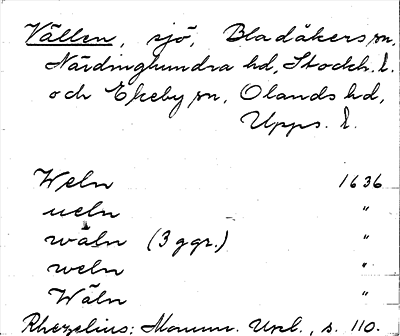 Vällen, sjö, Bladåkers sn,
Närdinghundra hd, Stockh. l.
och Ekeby sn, Olands hd,
Upps. l.
Weln 1636
ueln "
wäln (3 ggr.) "
weln "
Wäln "
Rhezelius: Monum. Upl., s. 110.